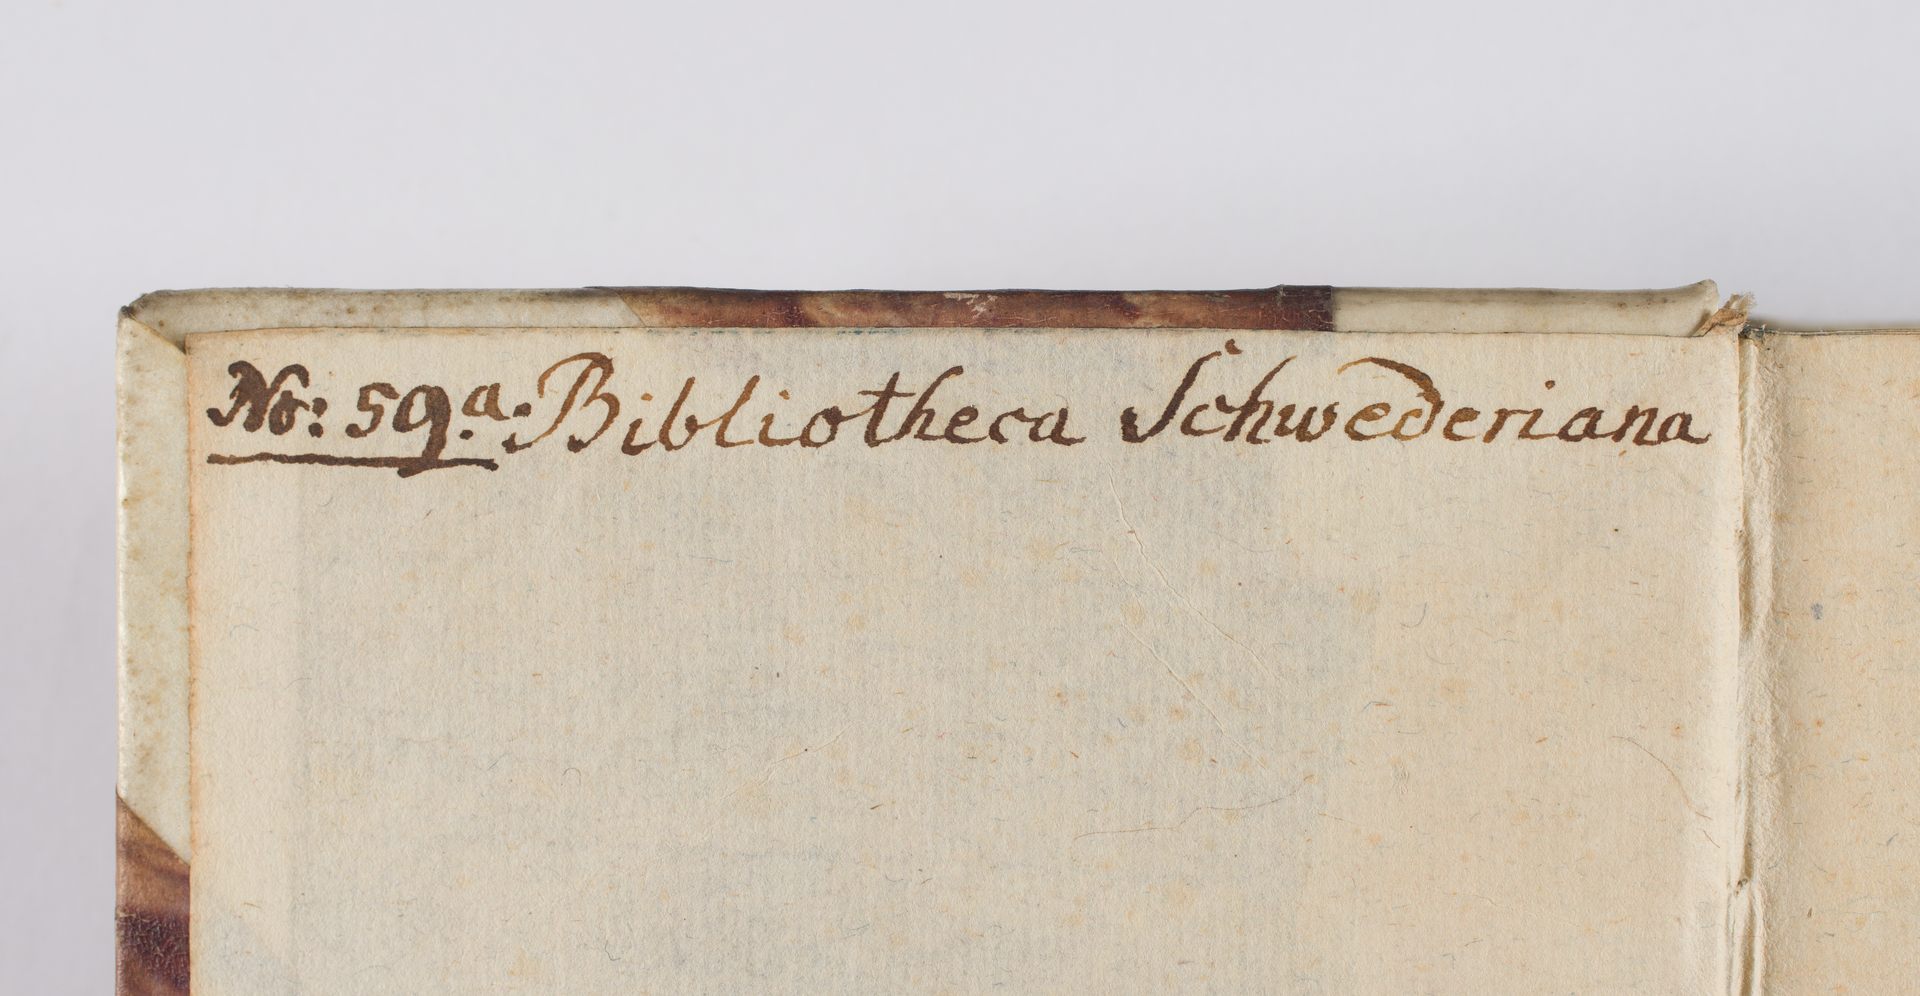 No: 59.a. Bibliotheca Schwederiana